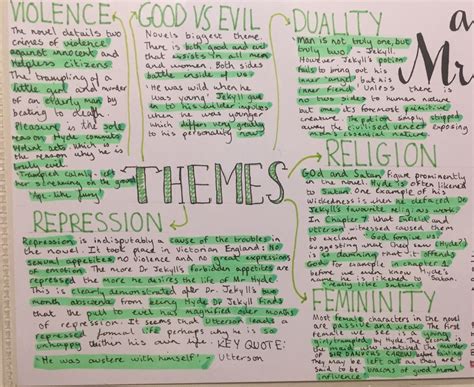 VIOLENCE
The novel details two
crimes of violence
against innocent and
helpless citizens.
The trampling of a
little girl and murder
of an elderly man by
beating to death.
Pleasure is the sole
reason Hyde commits
violent acts which is
the reason why he is
truly evil.
"Trampled calmly left
her screaming on the ground
"Ape-like fury"
GOOD VS EVIL
Novels biggest theme.
There is both good and evil
that exists in all men
and women. Both sides
battle inside of us
"He was wild when he
was young". Jekyll gave
in to his wilder impulses
when he was younger
which differs very greatly
to his personality now
DUALITY
'Man is not truly one, but
truly two' - Jekyll.
However Jekyll's potion
fails to bring out his
inner 'angel' but his
inner 'fiend'. Unless there is
no two sides to human nature
but one its foremost primitive
creature. The potion simply stripped
away the civilised veneer exposing
man's essential nature.
a
Mr
THEMES
RELIGION
God and Satan figure prominently
in the novel. Hyde is often likened
to Satan. One example of his
wickedness is when he defaced Dr
Jekyll's favourite religious work.
In Chapter 7 what Enfield and
Utterson witnessed caused them
to exclaim "God forgive us"
suggesting what they saw (Hyde)
is so damning that it offends
God. For example in chapter 1
before we even know he's
Hyde he is likened to Satan
"really like Satan"
REPRESSION
Repression is indisputably a cause of the troubles in
the novel. It took place in Victorian England: No
sexual appetites, no violence and no great expressions
of emotion. The more Dr Jekyll's forbidden appetites are
repressed the more he desires the life of Mr Hyde.
This is clearly demonstrated after Dr Jekyll's two
month abstinence from being Hyde Jekyll finds
that the pull to evil has magnified after months
of repression. It seems that Utterson leads a
repressed formal life perhaps why he is so
unhappy within his own life.
KEY QUOTE:
"He was austere with himself" - Utterson
FEMININITY
Most female characters in the novel
are passive and weak. The first
female we see is a young
girl trampled by Hyde. The second is
the maid who witnessed the murder
of SIR DANVERS CAREW before fainting
they may be left out as they are
said to be beacons of good moral
influence.